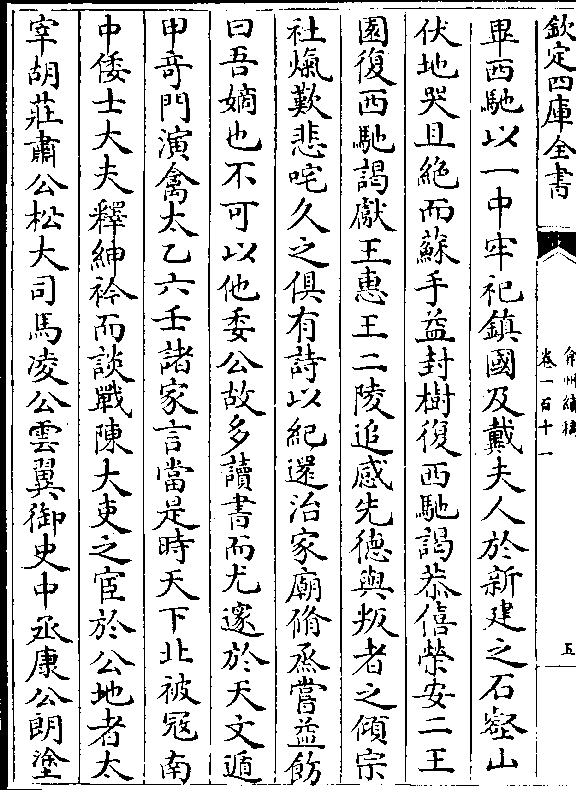 欽定四庫全書
弇州續稿
卷一百十一
五
畢西馳以一中牢祀鎮國及戴夫人於新建之石壑山
伏地哭且絶而蘇手益封樹復西馳謁恭僖榮安二王
園復西馳謁獻王惠王二陵追感先德與叛者之傾宗
社煼歎悲咤久之俱有詩以紀還治家廟脩烝嘗益飭
曰吾嫡也不可以他委公故多讀書而尤邃於天文遁
甲竒門演禽太乙六壬諸家言當是時天下北被冦南
中倭士大夫釋紳衿而談戰陳大吏之宦於公地者太
宰胡莊肅公松大司馬凌公雲翼御史中丞康公朗塗